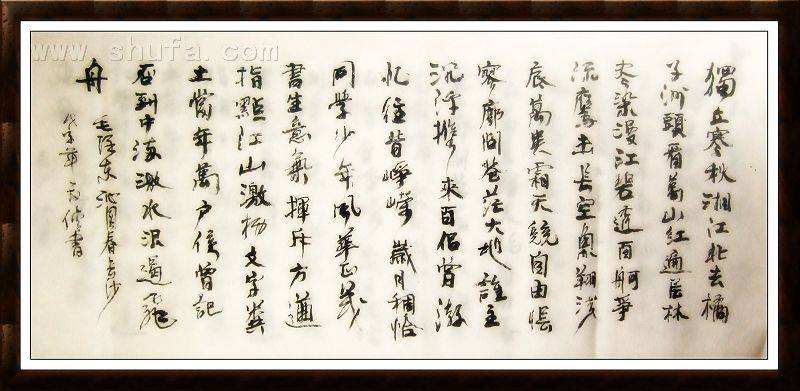 www.shufa.com
獨立寒秋湘江北去橘
子洲頭看萬山紅遍层林
尽染漫江碧透百舸爭
流鷹击長空魚翔浅
底萬类霜天競自由悵
寥廓问蒼茫大地誰主
沉浮携來百侣曾游
忆往昔崢嶸歲月稠恰
同學少年風華正茂
書生意氣揮斥方遒
指點江山激扬文字粪
土當年萬户侯曾記
否到中流激水浪遏飛
舟
毛泽东沁园春长沙
年書